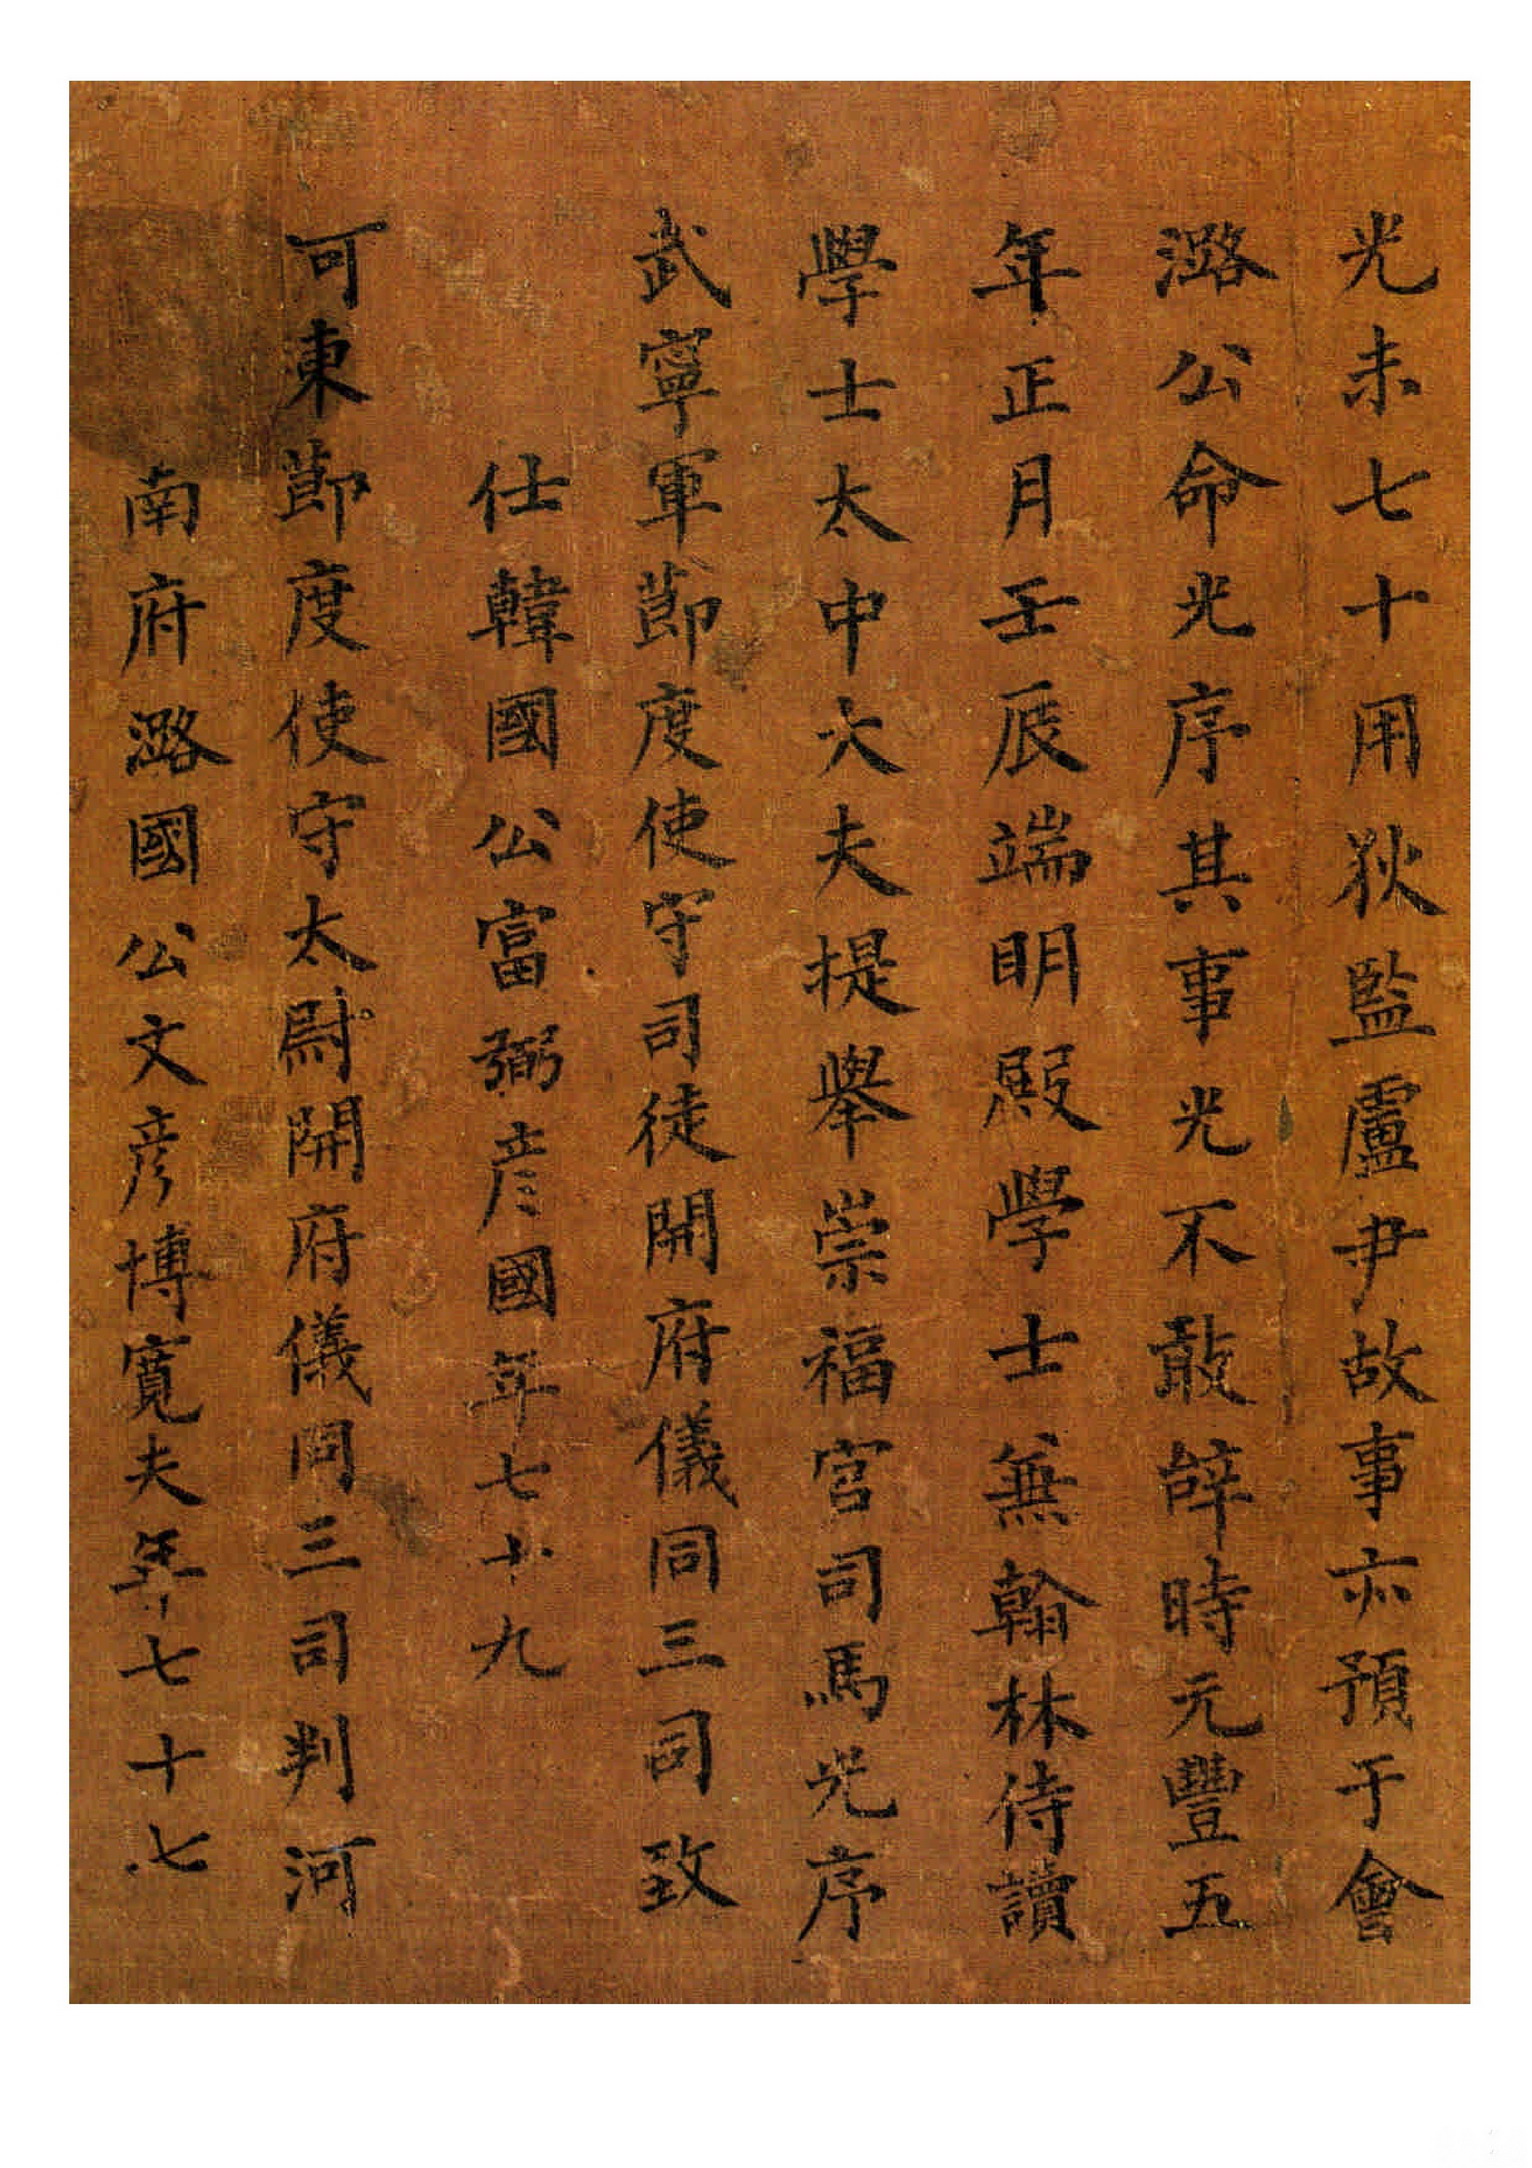 光未七十用狄監盧尹故事亦預于會
潞公命光序其事光不敢辭時元豐五
年正月壬辰端明殿學士兼翰林侍讀
學士太中大夫提舉崇福宮司馬光序
武寧軍節度使守司徒開府儀同三司致
仕韓國公富弼彥國年七十九
河東節度使守太尉開府儀同三司判河
南府潞國公文彥博寬夫年七十七